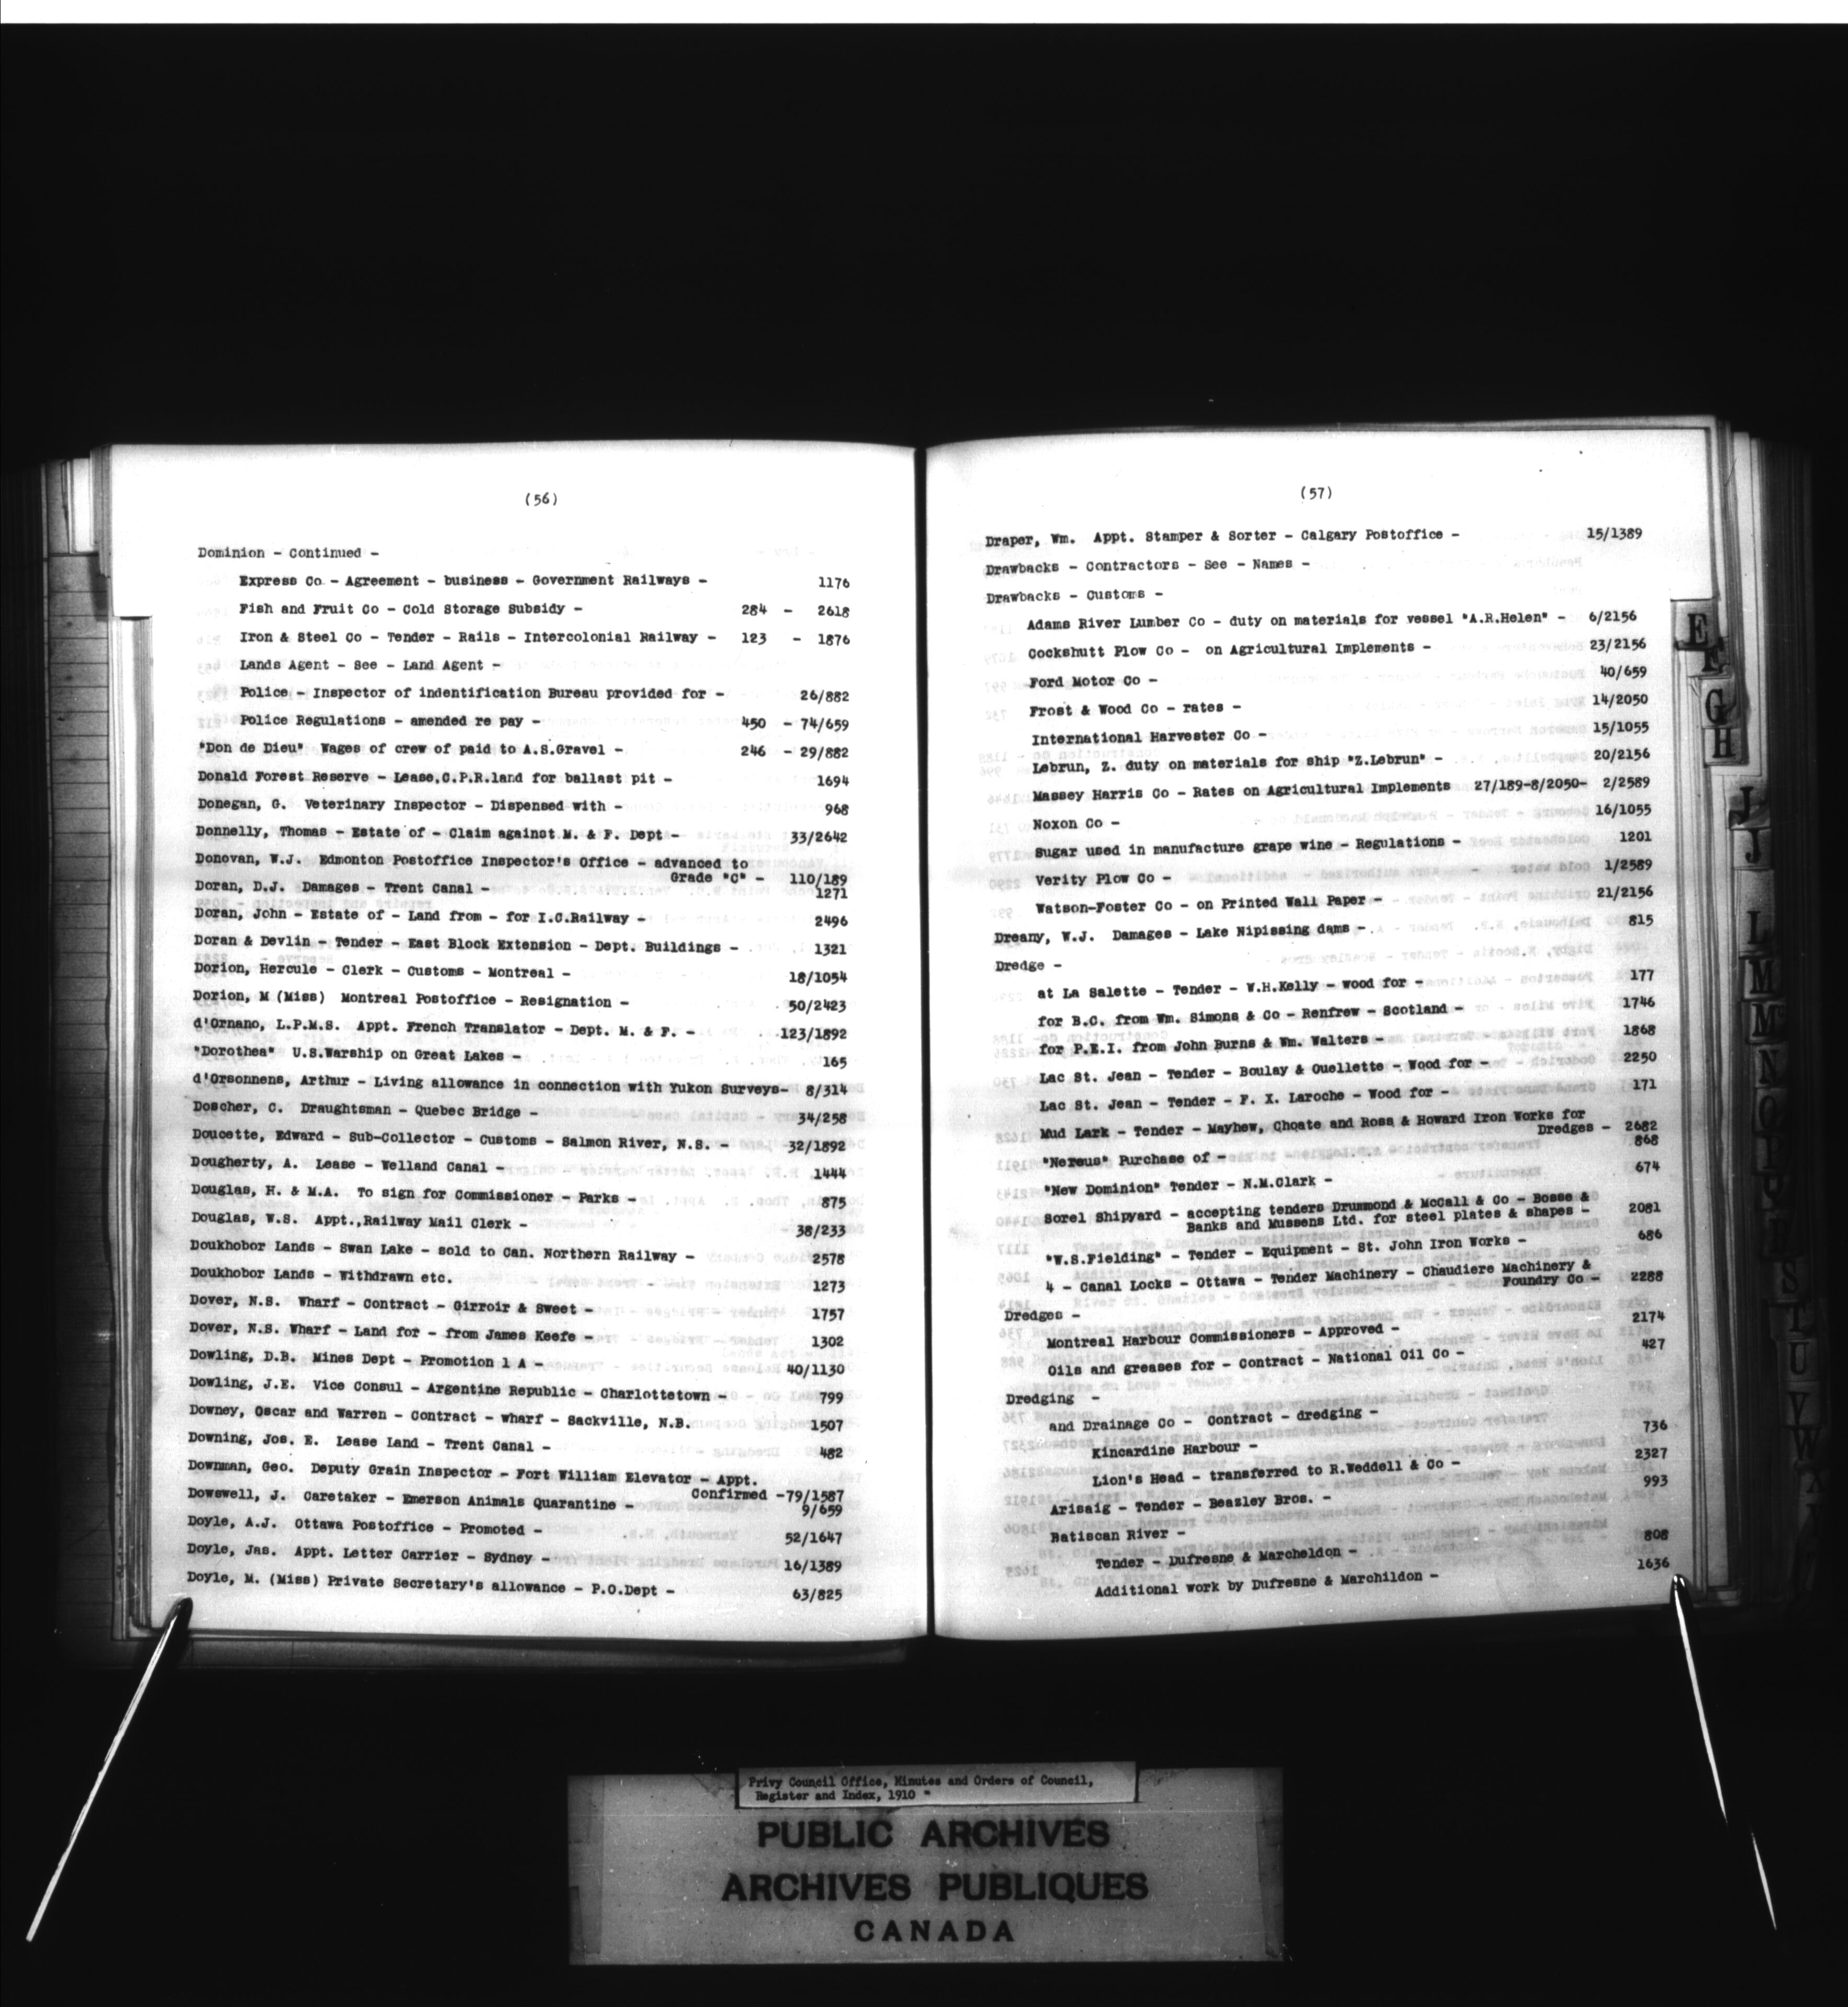 (56)
Dominion - Continued -
Express Co - Agreement - business - Government Railways - 1176
Fish and Fruit Co - Cold Storage Subsidy - 284 - 2618
Iron & Steel Co - Tender - Rails - Intercolonial Railway - 123 - 1876
Lands Agent - See - Land Agent -
Police - Inspector of indentification Bureau provided for - 26/882
Police Regulations - amended re pay - 450 - 74/659
"Don de Dieu" Wages of crew of paid to A.S.Gravel - 246 - 29/882
Donald Forest Reserve - Lease,C.P.R.land for ballast pit - 1694
Donegan, G. Veterinary Inspector - Dispensed with - 968
Donnelly, Thomas - Estate of - Claim against M. & F. Dept - 33/2642
Donovan, W.J. Edmonton Postoffice Inspector's Office - advanced to
Grade "C" - 110/189
Doran, D.J. Damages - Trent Canal - 1271
Doran, John - Estate of - Land from - for I.C.Railway - 2496
Doran & Devlin - Tender - East Block Extension - Dept. Buildings - 1321
Dorion, Hercule - Clerk - Customs - Montreal - 18/1054
Dorion, M (Miss) Montreal Postoffice - Resignation - 50/2423
d'Ornano, L.P.M.S. Appt. French Translator - Dept. M. & F. - 123/1892
"Dorothea" U.S.Warship on Great Lakes - 165
d'Orsonnens, Arthur - Living allowance in connection with Yukon Surveys- 8/314
Doscher, C. Draughtsman - Quebec Bridge - 34/258
Doucette, Edward - Sub-Collector - Customs - Salmon River, N.S. - 32/1892
Dougherty, A. Lease - Welland Canal - 1444
Douglas, H. & M.A. To sign for Commissioner - Parks - 875
Douglas, W.S. Appt.,Railway Mail Clerk - 38/233
Doukhobor Lands - Swan Lake - sold to Can. Northern Railway - 2578
Doukhobor Lands - Withdrawn etc. 1273
Dover, N.S. Wharf - Contract - Girroir & Sweet - 1757
Dover, N.S. Wharf - Land for - from James Keefe - 1302
Dowling, D.B. Mines Dept - Promotion 1 A - 40/1130
Dowling, J.E. Vice Consul - Argentine Republic - Charlottetown - 799
Downey, Oscar and Warren - Contract - wharf - Sackville, N.B. 1507
Downing, Jos. E. Lease Land - Trent Canal - 482
Downman, Geo. Deputy Grain Inspector - Fort William Elevator - Appt.
Confirmed -79/1587
Dowswell, J. Caretaker - Emerson Animals Quarantine - 9/659
Doyle, A.J. Ottawa Postoffice - Promoted - 52/1647
Doyle, Jas. Appt. Letter Carrier - Sydney - 16/1389
Doyle, M. (Miss) Private Secretary's allowance - P.O.Dept - 63/825
(57)
Draper, Wm. Appt. Stamper & Sorter - Calgary Postoffice - 15/1389
Drawbacks - Contractors - See - Names -
Drawbacks - Customs -
Adams River Lumber Co - duty on materials for vessel "A.R.Helen" - 6/2156
Cockshutt Plow Co - on Agricultural Implements - 23/2156
Ford Motor Co - 40/659
Frost & Wood Co - rates - 14/2050
International Harvester Co - 15/1055
Lebrun, Z. duty on materials for ship "Z.Lebrun" - 20/2156
Massey Harris Co - Rates on Agricultural Implements 27/189-8/2050- 2/2589
Noxon Co - 16/1055
Sugar used in manufacture grape wine - Regulations - 1201
Verity Plow Co - 1/2589
Watson-Foster Co - on Printed Wall Paper - 21/2156
Dreany, W.J. Damages - Lake Nipissing dams - 815
Dredge -
at La Salette - Tender - W.H.Kelly - wood for - 177
for B.C. from Wm. Simons & Co - Renfrew - Scotland - 1746
for P.E.I. from John Burns & Wm. Walters - 1868
Lac St. Jean - Tender - Boulay & Ouellette - Wood for - 2250
Lac St. Jean - Tender - F. X. Laroche - Wood for - 171
Mud Lark - Tender - Mayhew, Choate and Ross & Howard Iron Works for
Dredges - 2682
"Nereus" Purchase of - 868
"New Dominion" Tender - N.M.Clark - 674
Sorel Shipyard - accepting tenders Drummond & McCall & Co - Bosse &
Banks and Mussens Ltd. for steel plates & shapes - 2081
"W.S.Fielding" - Tender - Equipment - St. John Iron Works - 686
4 - Canal Locks - Ottawa - Tender Machinery - Chaudiere Machinery &
Foundry Co - 2288
Dredges -
Montreal Harbour Commissioners - Approved - 2174
Oils and greases for - Contract - National Oil Co - 427
Dredging -
and Drainage Co - Contract - dredging -
Kincardine Harbour - 736
Lion's Head - transferred to R.Weddell & Co - 2327
Arisaig - Tender - Beazley Bros. - 993
Batiscan River -
Tender - Dufresne & Marcheldon - 808
Additional work by Dufresne & Marchildon - 1636
E
F
G
H
J
L
M
N
O
S
T
U
V
W
Privy Council Office, Minutes and Orders of Council,
Register and Index, 1910 "
PUBLIC ARCHIVES
ARCHIVES PUBLIQUES
CANADA